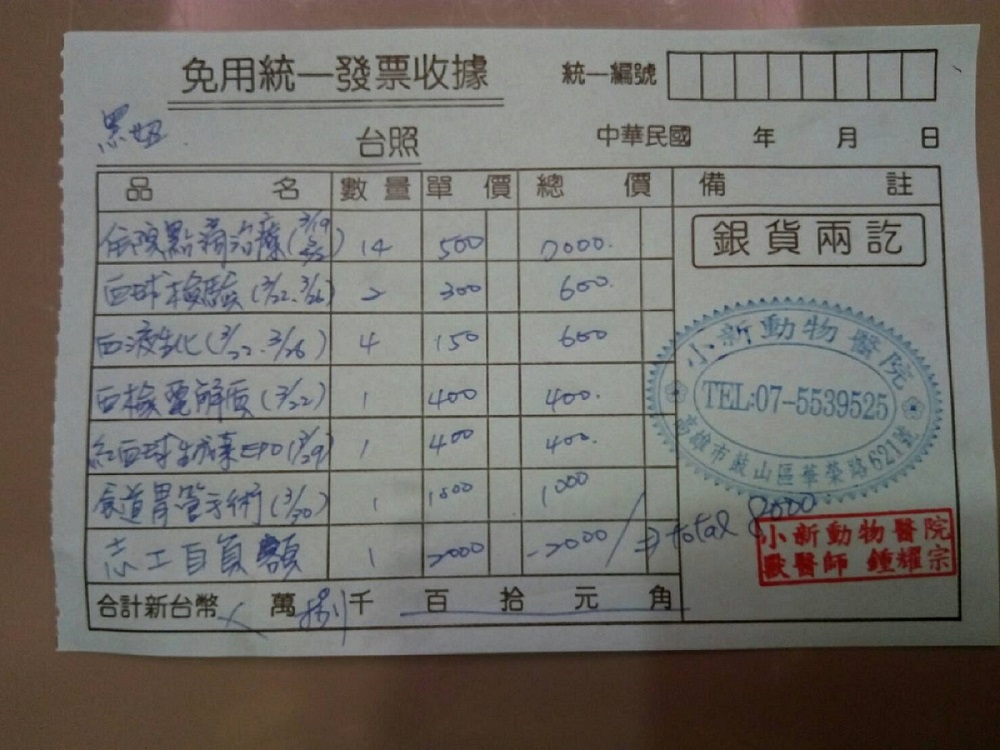 免用統一發票收據 統一編號
黑妞
台照 中華民國 年 月 日
品名 數量 單價 總價 備註
住院點滴治療(3/19 14 500 7000.
銀貨兩訖
血球檢驗(3/22.3/26) 2 300 600.
血液生化(3/22.3/26) 4 150 600
小新動物醫院
TEL:07-5539525
高雄市鼓山區華榮路621號
血檢電解質(3/22) 1 400 400.
紅血球生成素EPO(3/29) 1 400 400.
食道胃管手術(3/30) 1 1000 1000
志工自負額 1 2000 -2000 ⇒ total 8000
小新動物醫院
獸醫師 鍾耀宗
合計新台幣 萬 捌 千 百 拾 元 角